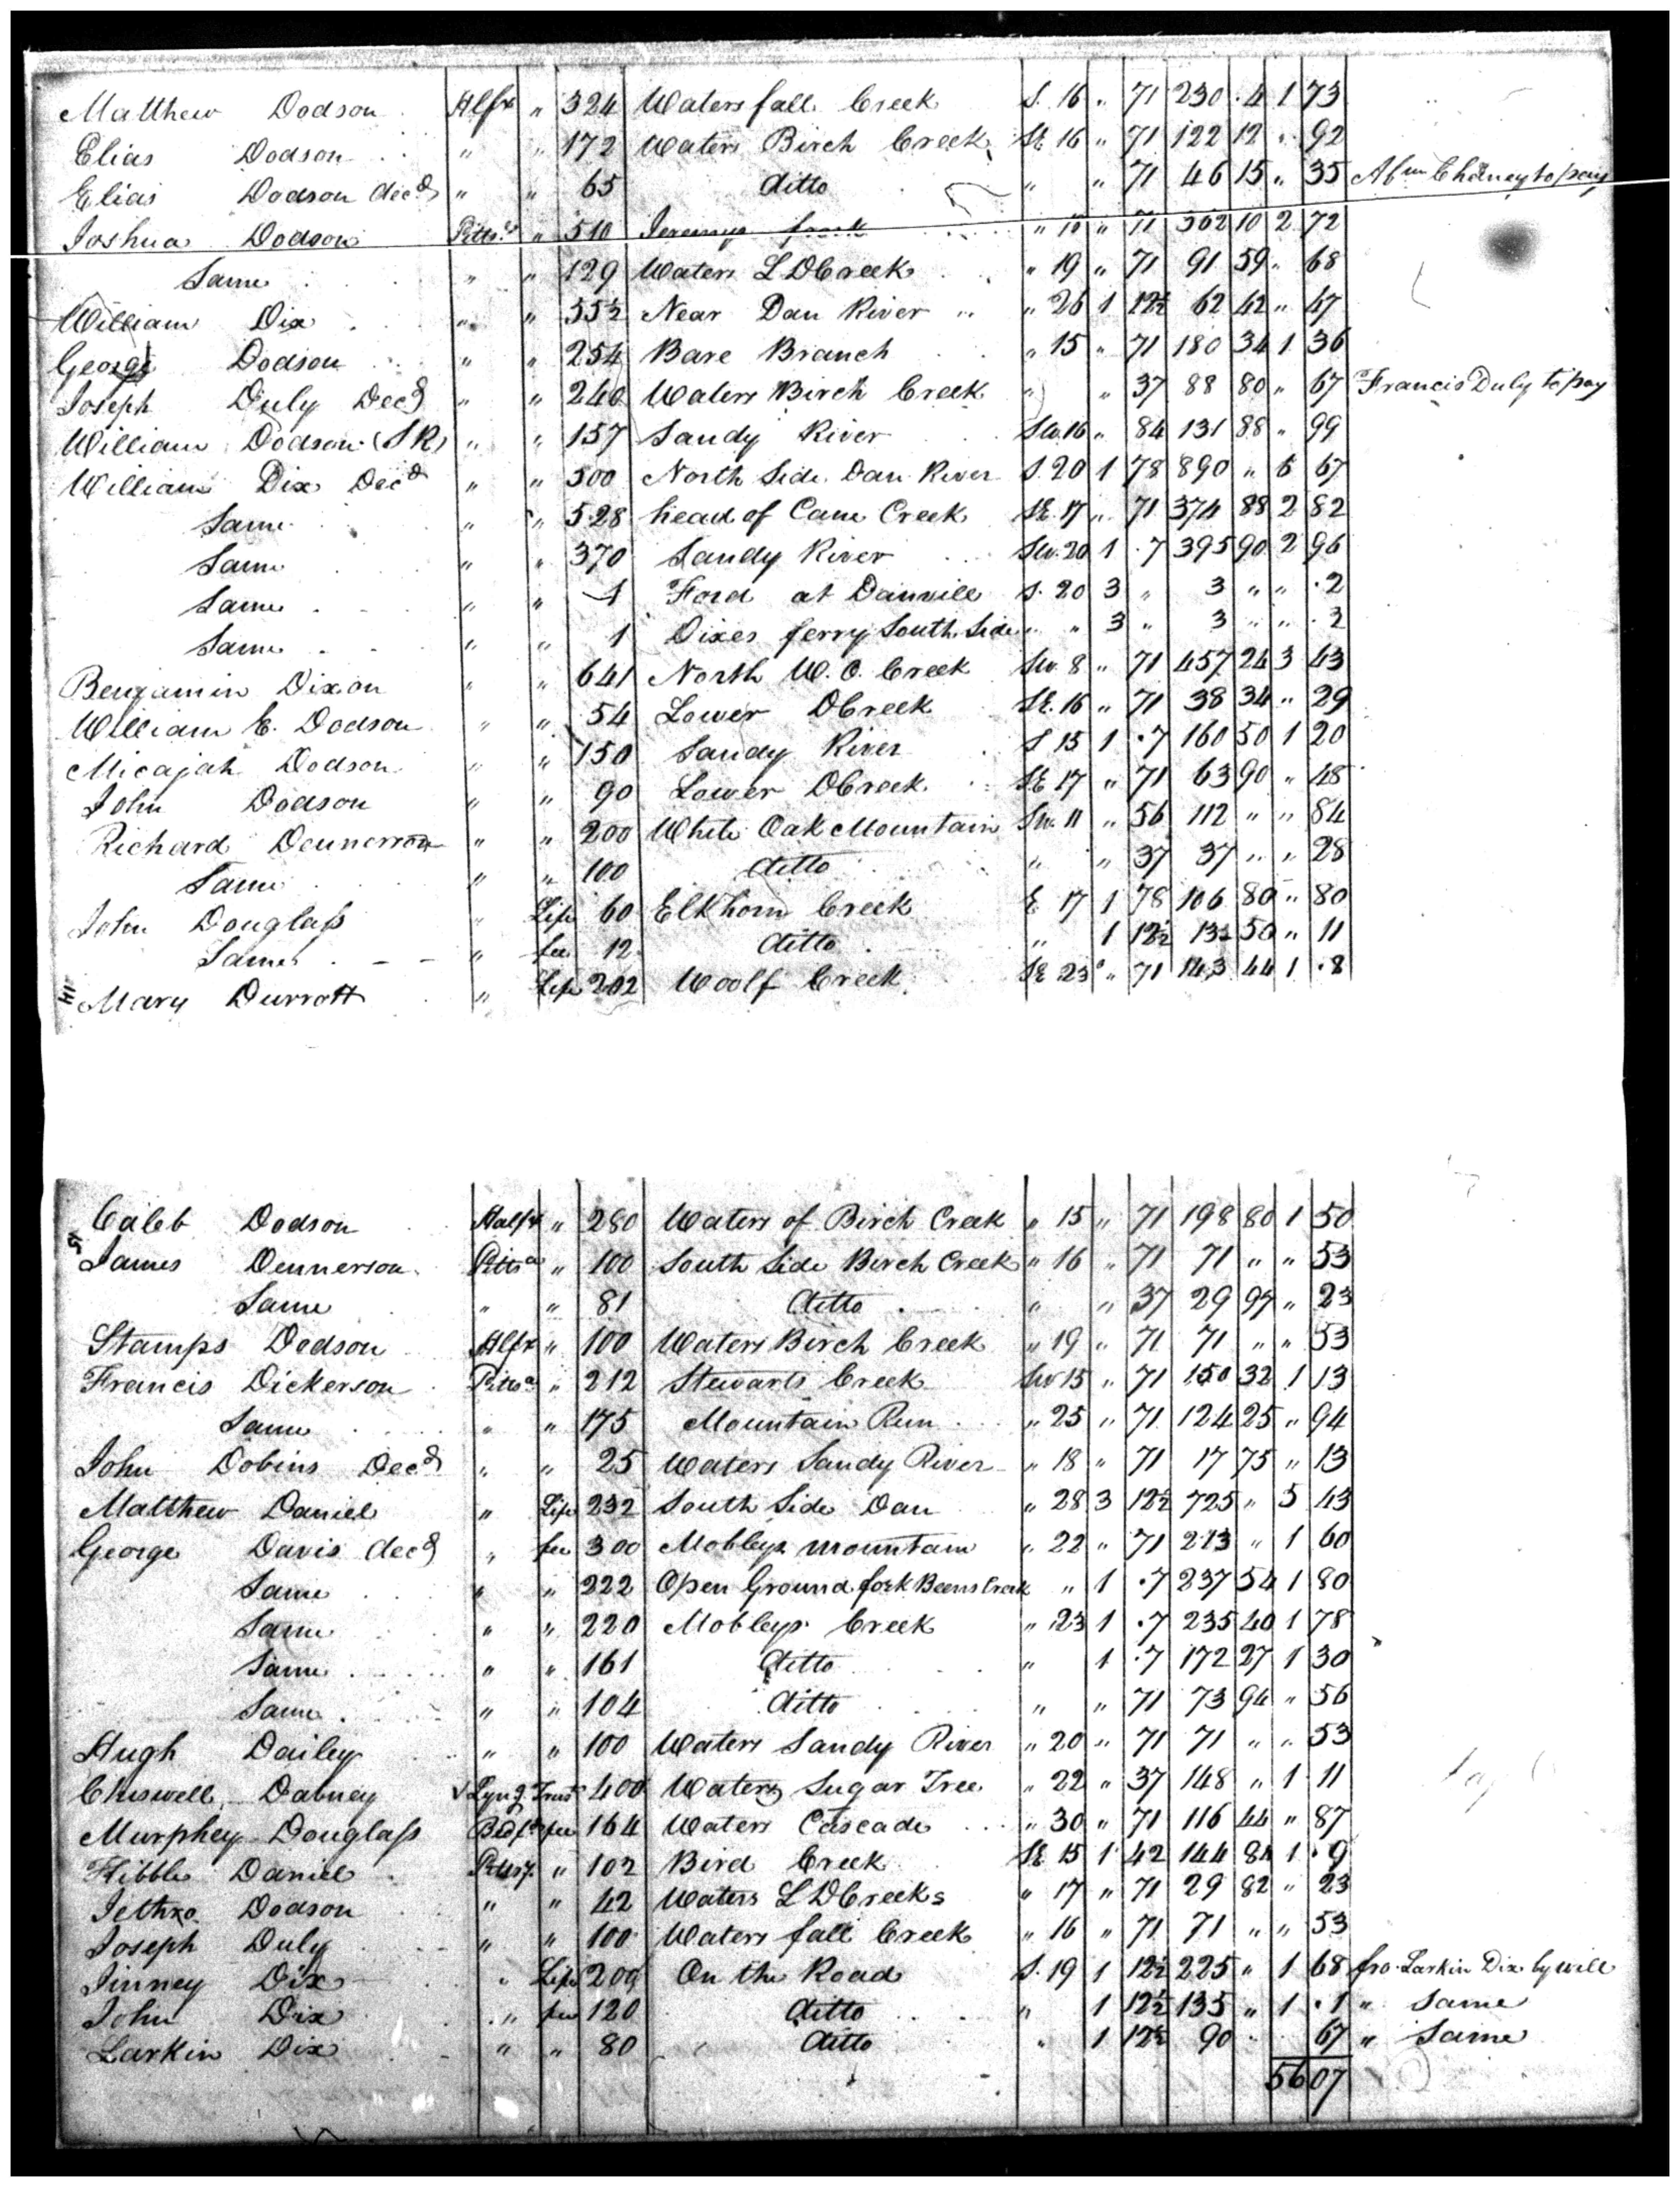 Matthew Dodson Hlfx " 324 Waters fall Creek S. 16 " 71 230 .4 1 73
Elias Dodson " " 172 Waters Birch Creek SE 16 " 71 122 12 " 92
Elias Dodson decd " " 65 ditto " " 71 46 15 " 35 Abm Chaney to pay
Joshua Dodson Pittsa " 510 Jeremys fork " 18 " 71 362 10 2 72
Same " " 129 Waters L DCreek " 19 " 71 91 59 " 68
William Dix " " 55½ Near Dan River " 26 1 12½ 62 42 " 47
George Dodson " " 254 Bare Branch " 15 " 71 180 34 1 36
Joseph Duly Decd " " 240 Waters Birch Creek " " 37 88 80 " 67 Francis Duly to pay
William Dodson (SR) " " 157 Sandy River SW. 16 " 84 131 88 " 99
William Dix Decd " " 500 North Side Dan River S. 20 1 78 890 " 6 67
Same " " 528 head of Cane Creek SE. 17 " 71 374 88 2 82
Same " " 370 Sandy River SW. 20 1 .7 395 90 2 96
Same " " 1 Ford at Danville S. 20 3 " 3 " " .2
Same " " 1 Dixes ferry South Side " " 3 " 3 " " .2
Benjamin Dixon " " 641 North W. O. Creek SW. 8 " 71 457 24 3 43
William C. Dodson " " 54 Lower DCreek SE. 16 " 71 38 34 " 29
Micajah Dodson " " 150 Sandy River S 15 1 .7 160 50 1 20
John Dodson " " 90 Lower DCreek SE 17 " 71 63 90 " 48
Richard Dennerson " " 200 White Oak Mountain SW. 11 " 56 112 " " 84
Same " " 100 ditto " " 37 37 " " 28
John Douglass " Life 60 Elkhorn Creek E 17 1 78 106 80 " 80
Same " fee 12 ditto " 1 12½ 13 50 " 11
Mary Durrott " Life 202 Woolf Creek SE 23 " 71 143 44 1 .8
Caleb Dodson Halfx " 280 Waters of Birch Creek " 15 " 71 198 80 1 50
James Dennerson Pittsa " 100 South Side Birch Creek " 16 " 71 71 " " 53
Same " " 81 ditto " " 37 29 97 " 23
Stamps Dodson Hlfx " 100 Waters Birch Creek " 19 " 71 71 " " 53
Francis Dickerson Pittsa " 212 Stewarts Creek SW 15 " 71 150 32 1 13
Same " " 175 Mountain Run " 25 " 71 124 25 " 94
John Dobins Decd " " 25 Waters Sandy River " 18 " 71 17 75 " 13
Matthew Daniel " Life 232 South Side Dan " 28 3 12½ 725 " 5 43
George Davis decd " fee 300 Mobleys mountain " 22 " 71 213 " 1 60
Same " " 222 Open Ground fork Beens Creek " 1 .7 237 54 1 80
Same " " 220 Mobleys Creek " 23 1 .7 235 40 1 78
Same " " 161 ditto " 1 .7 172 27 1 30
Same " " 104 ditto " " 71 73 94 " 56
Hugh Dailey " " 100 Waters Sandy River " 20 " 71 71 " " 53
Chiswell Dabney Lyng. Trust 400 Waters Sugar Tree " 22 " 37 148 " 1 11
Murphey Douglass Bedfd fee 164 Waters Cascade " 30 " 71 116 44 " 87
Hibble Daniel Pittsy. " 102 Bird Creek SE 15 1 42 144 84 1 .9
Jethro Dodson " " 42 Waters L DCreeks " 17 " 71 29 82 " 23
Joseph Duly " " 100 Waters fall Creek " 16 " 71 71 " " 53
Jinney Dix " Life 200 On the Road S. 19 1 12½ 225 " 1 68 fro. Larkin Dix by will
John Dix " fee 120 ditto " 1 12½ 135 " 1 .1 " Same
Larkin Dix " " 80 ditto " 1 12½ 90 67 " Same
56 07